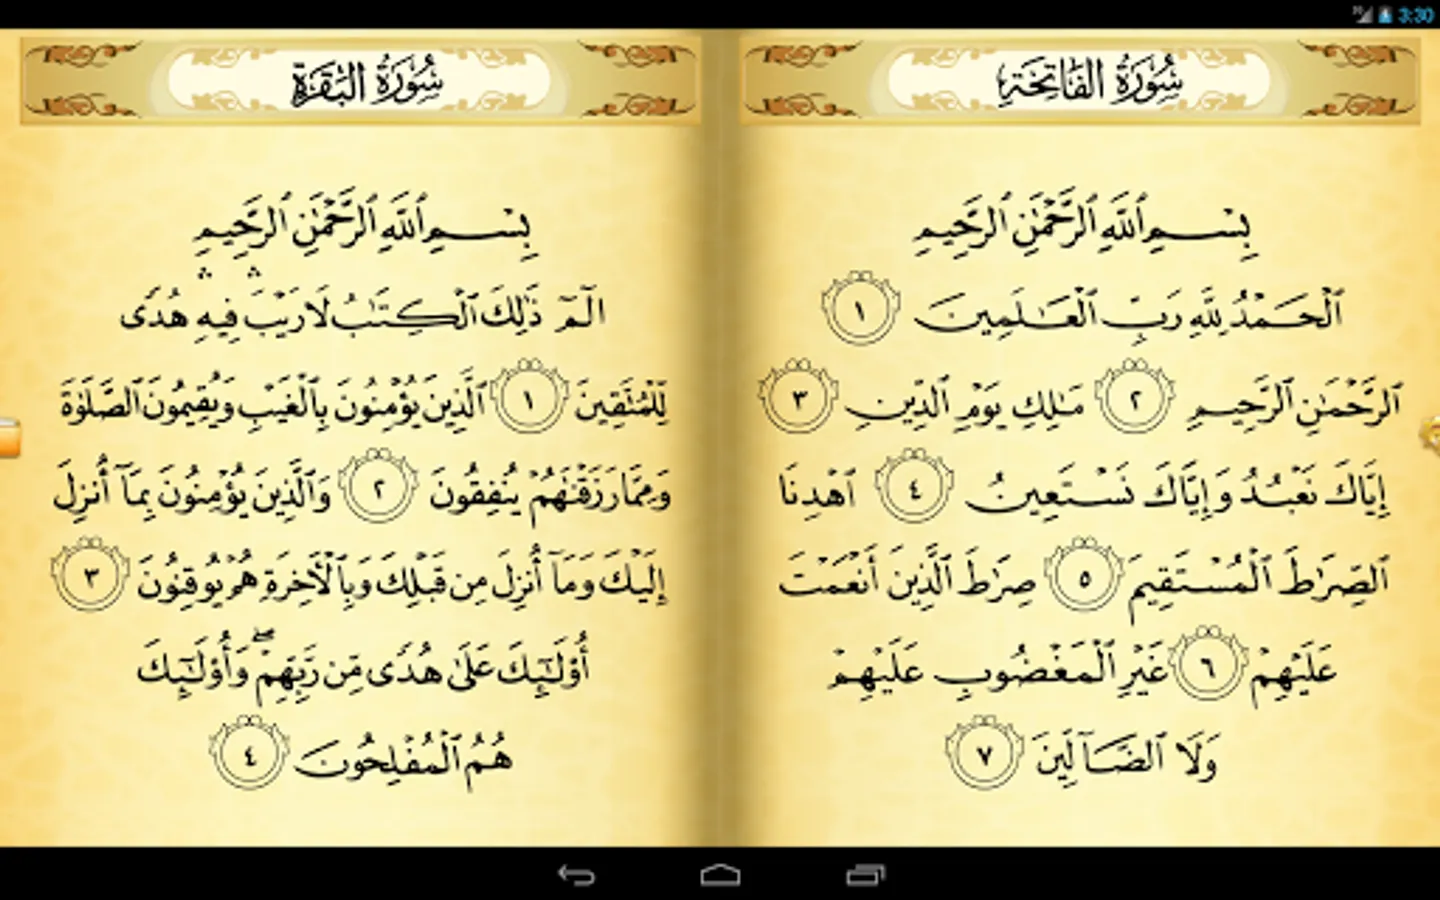 3:30
سُورَةُ الفَاتِحَةِ
بِسْمِ ٱللَّهِ ٱلرَّحْمَٰنِ ٱلرَّحِيمِ
ٱلْحَمْدُ لِلَّهِ رَبِّ ٱلْعَٰلَمِينَ ١
ٱلرَّحْمَٰنِ ٱلرَّحِيمِ ٢ مَٰلِكِ يَوْمِ ٱلدِّينِ ٣
إِيَّاكَ نَعْبُدُ وَإِيَّاكَ نَسْتَعِينُ ٤ ٱهْدِنَا
ٱلصِّرَٰطَ ٱلْمُسْتَقِيمَ ٥ صِرَٰطَ ٱلَّذِينَ أَنْعَمْتَ
عَلَيْهِمْ ٦ غَيْرِ ٱلْمَغْضُوبِ عَلَيْهِمْ
وَلَا ٱلضَّآلِّينَ ٧
سُورَةُ البَقَرَةِ
بِسْمِ ٱللَّهِ ٱلرَّحْمَٰنِ ٱلرَّحِيمِ
الٓمٓ ذَٰلِكَ ٱلْكِتَٰبُ لَا رَيْبَ ۛ فِيهِ ۛ هُدًى
لِّلْمُتَّقِينَ ١ ٱلَّذِينَ يُؤْمِنُونَ بِٱلْغَيْبِ وَيُقِيمُونَ ٱلصَّلَوٰةَ
وَمِمَّا رَزَقْنَٰهُمْ يُنفِقُونَ ٢ وَٱلَّذِينَ يُؤْمِنُونَ بِمَآ أُنزِلَ
إِلَيْكَ وَمَآ أُنزِلَ مِن قَبْلِكَ وَبِٱلْأَخِرَةِ هُمْ يُوقِنُونَ ٣
أُو۟لَٰٓئِكَ عَلَىٰ هُدًى مِّن رَّبِّهِمْ ۖ وَأُو۟لَٰٓئِكَ
هُمُ ٱلْمُفْلِحُونَ ٤